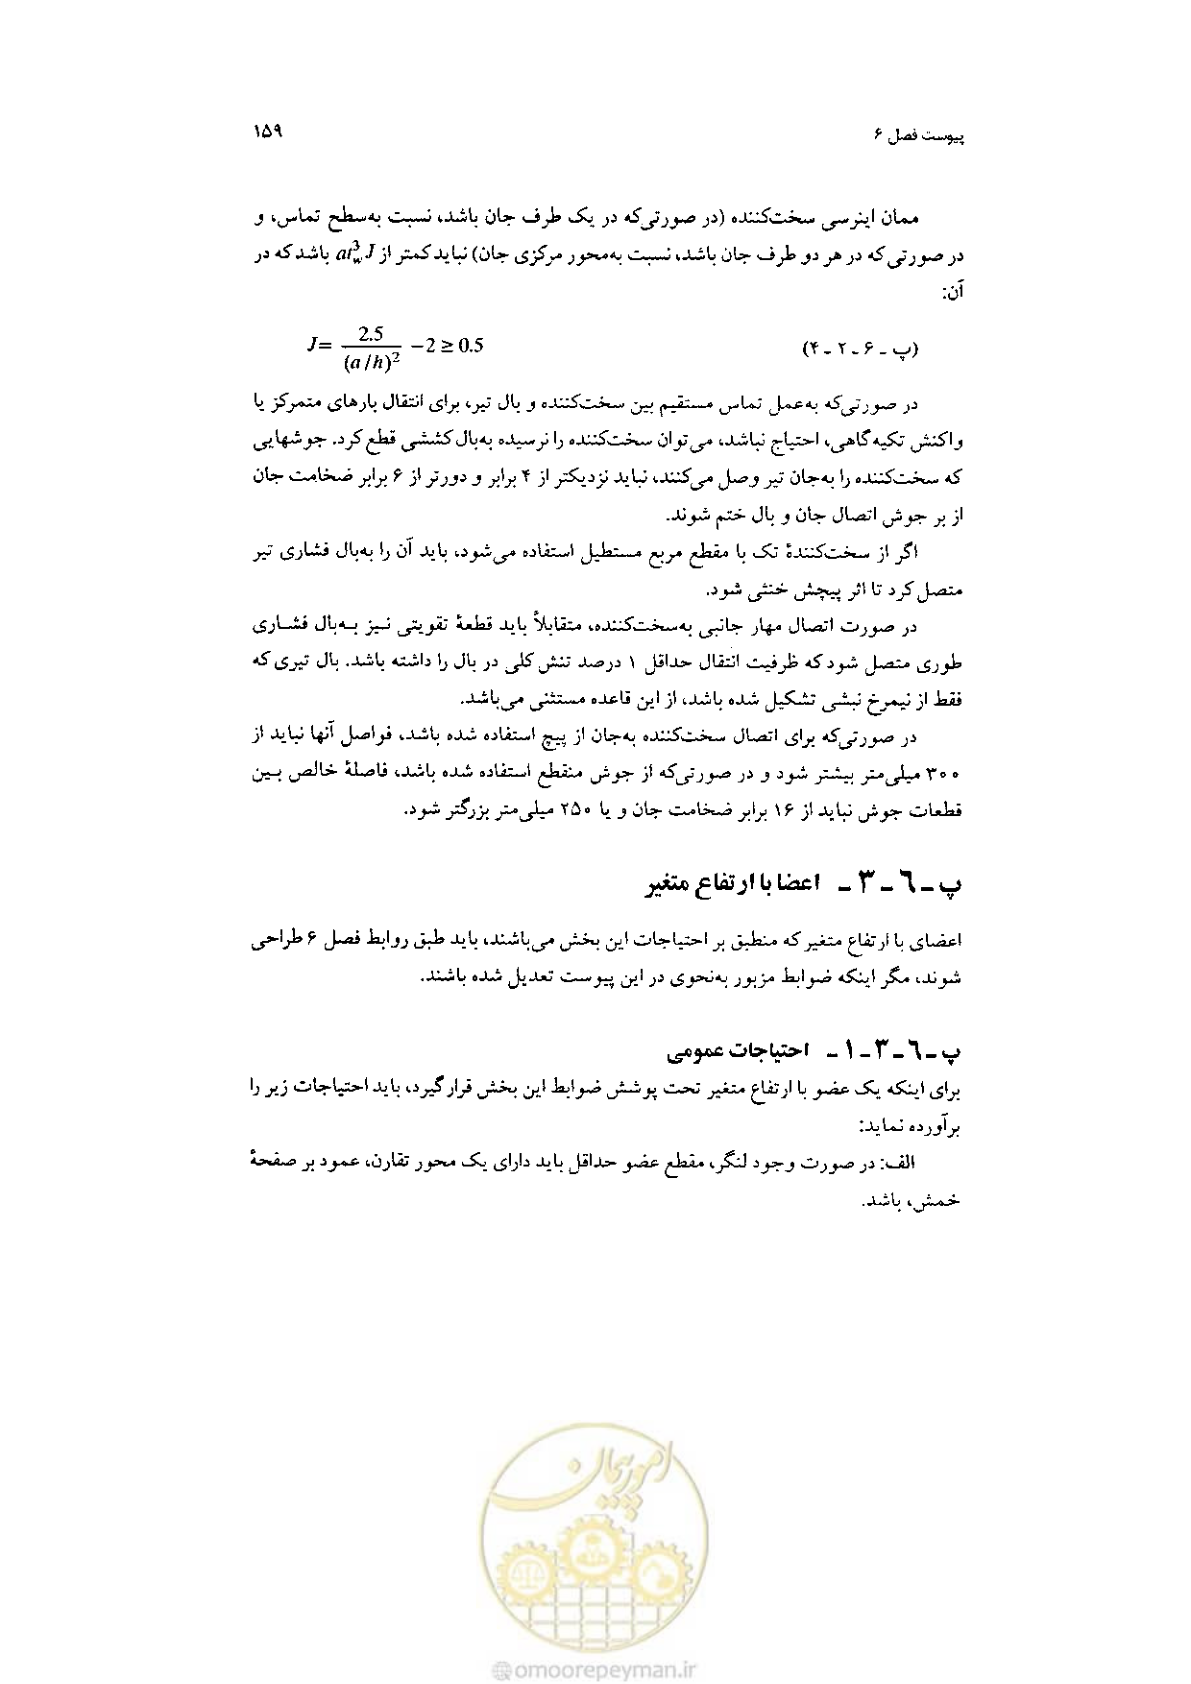 پیوست فصل ۶
۱۵۹
ممان اینرسی سخت‌کننده (در صورتی‌که در یک طرف جان باشد، نسبت به‌سطح تماس، و
در صورتی‌که در هر دو طرف جان باشد، نسبت به‌محور مرکزی جان) نباید کمتر از at³wJ باشد که در
آن:
J = 2.5/(a/h)² −2 ≥ 0.5 (پ ـ ۶ ـ ۲ ـ ۴)
در صورتی‌که به‌عمل تماس مستقیم بین سخت‌کننده و بال تیر، برای انتقال بارهای متمرکز یا
واکنش تکیه‌گاهی، احتیاج نباشد، می‌توان سخت‌کننده را نرسیده به‌بال کششی قطع کرد. جوشهایی
که سخت‌کننده را به‌جان تیر وصل می‌کنند، نباید نزدیکتر از ۴ برابر و دورتر از ۶ برابر ضخامت جان
از بر جوش اتصال جان و بال ختم شوند.
اگر از سخت‌کنندهٔ تک با مقطع مربع مستطیل استفاده می‌شود، باید آن را به‌بال فشاری تیر
متصل کرد تا اثر پیچش خنثی شود.
در صورت اتصال مهار جانبی به‌سخت‌کننده، متقابلاً باید قطعهٔ تقویتی نیز به‌بال فشاری
طوری متصل شود که ظرفیت انتقال حداقل ۱ درصد تنش کلی در بال را داشته باشد. بال تیری که
فقط از نیمرخ نبشی تشکیل شده باشد، از این قاعده مستثنی می‌باشد.
در صورتی‌که برای اتصال سخت‌کننده به‌جان از پیچ استفاده شده باشد، فواصل آنها نباید از
۳۰۰ میلی‌متر بیشتر شود و در صورتی‌که از جوش منقطع استفاده شده باشد، فاصلهٔ خالص بین
قطعات جوش نباید از ۱۶ برابر ضخامت جان و یا ۲۵۰ میلی‌متر بزرگتر شود.
پ ـ ۶ ـ ۳ ـ اعضا با ارتفاع متغیر
اعضای با ارتفاع متغیر که منطبق بر احتیاجات این بخش می‌باشند، باید طبق روابط فصل ۶ طراحی
شوند، مگر اینکه ضوابط مزبور به‌نحوی در این پیوست تعدیل شده باشند.
پ ـ ۶ ـ ۳ ـ ۱ ـ احتیاجات عمومی
برای اینکه یک عضو با ارتفاع متغیر تحت پوشش ضوابط این بخش قرار گیرد، باید احتیاجات زیر را
برآورده نماید:
الف: در صورت وجود لنگر، مقطع عضو حداقل باید دارای یک محور تقارن، عمود بر صفحهٔ
خمش، باشد.
امور پیمان
@omoorepeyman.ir